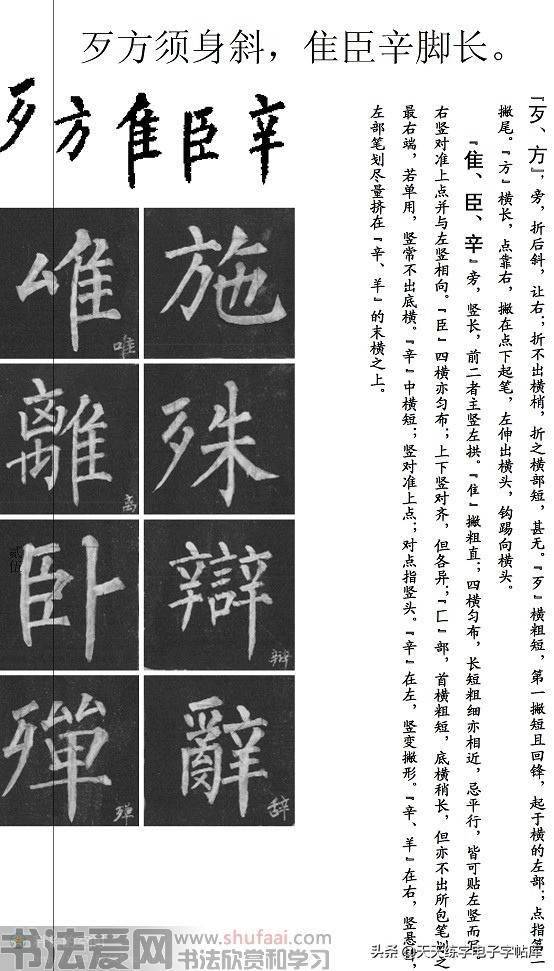 歹方须身斜，隹臣辛脚长。
歹方隹臣辛
『歹、方』，旁，折后斜，让右；折不出横梢，折之横部短，甚无。『歹』横粗短，第一撇短且回锋，起于横的左部；点指第二
撇尾。『方』横长，点靠右，撇在点下起笔，左伸出横头，钩踢向横头。
『隹、臣、辛』旁，竖长，前二者主竖左拱。『隹』撇粗直；四横匀布，长短粗细亦相近，忌平行，皆可贴左竖而写
右竖对准上点并与左竖相向。『臣』四横亦匀布；上下竖对齐，但各异；『匚』部，首横粗短，底横稍长，但亦不出所包笔划之
最右端，若单用，竖常不出底横。『辛』中横短；竖对准上点；对点指竖头。『辛』在左，竖变撇形。『辛、羊』在右，竖悬
左部笔划尽量挤在『辛、羊』的末横之上。
唯 唯
施
離 离
殊
卧
辯 辩
殫 殚
辭 辞
贰伍
书法爱网 www.shufaai.com
书法欣赏和学习
头条 @天天练字电子字帖库